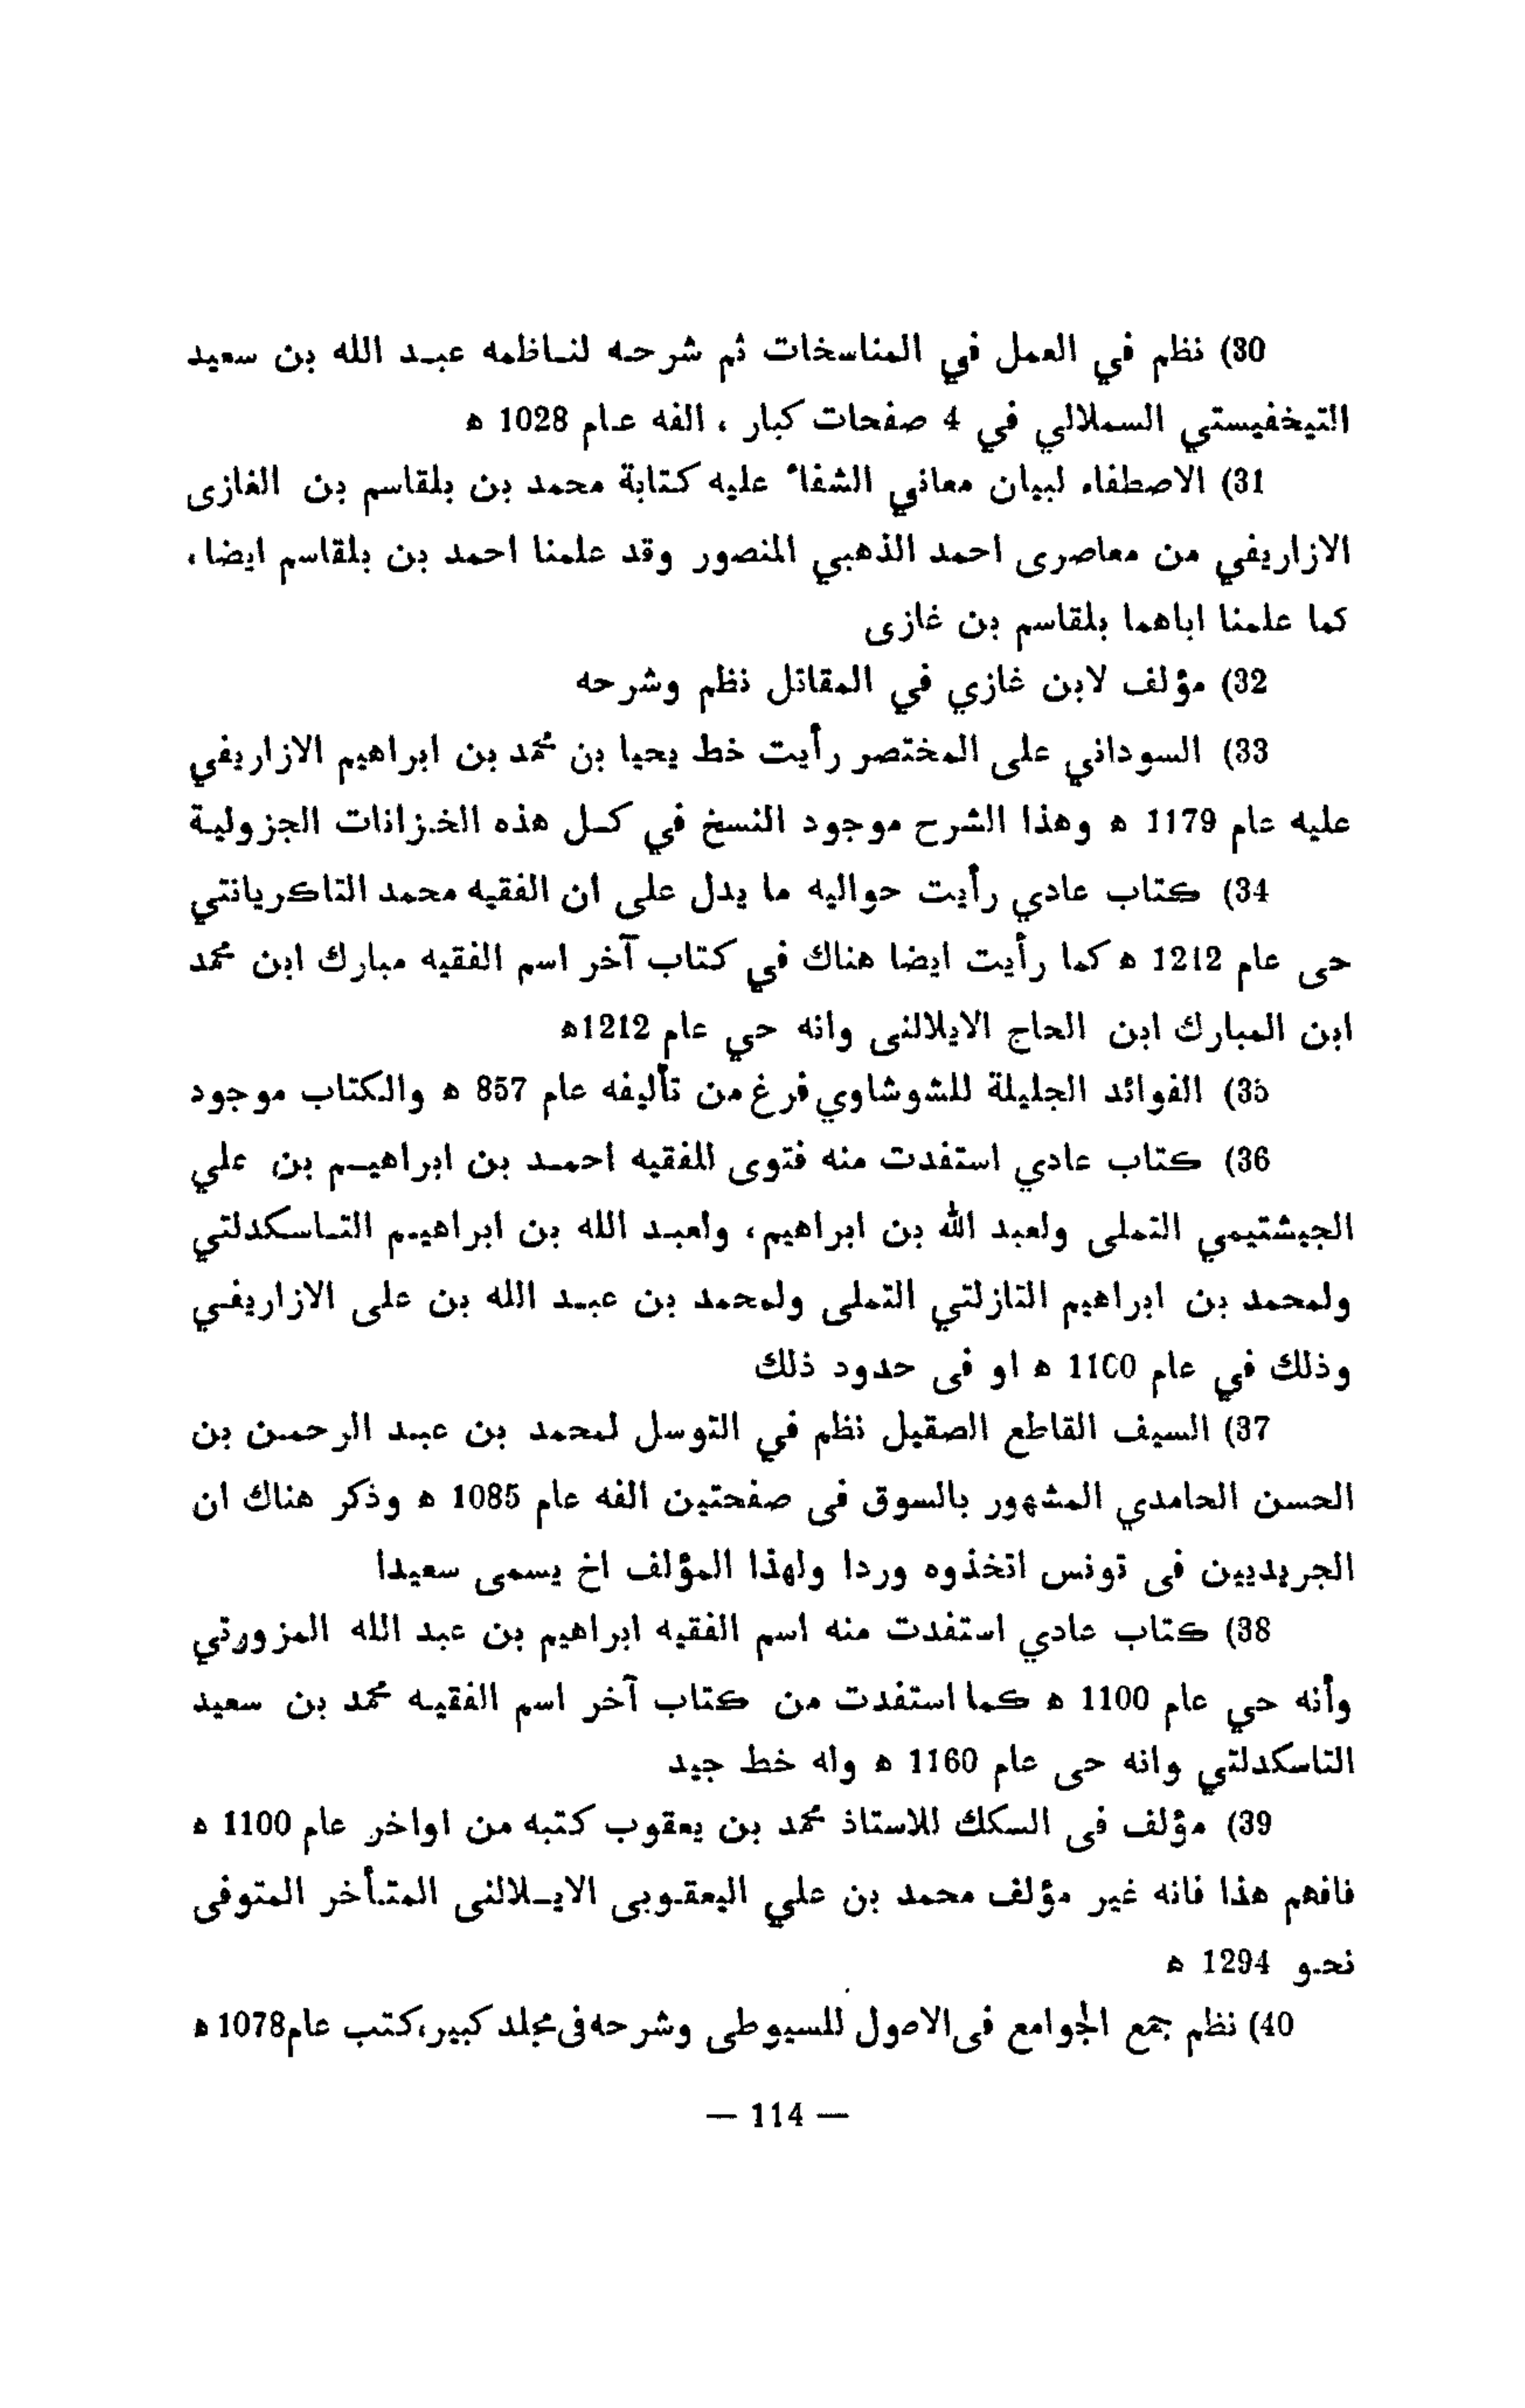 30) نظم في العمل في المناسخات ثم شرحه لناظمه عبد الله بن سعيد
التيخفيستي السملالي في 4 صفحات كبار ، الفه عام 1028 ه
31) الاصطفاء لبيان معاني الشفاء عليه كتابة محمد بن بلقاسم بن الغازى
الازاريفي من معاصرى احمد الذهبي المنصور وقد علمنا احمد بن بلقاسم ايضا ،
كما علمنا اباهما بلقاسم بن غازى
32) مؤلف لابن غازي في المقاتل نظم وشرحه
33) السوداني على المختصر رأيت خط يحيا بن محمد بن ابراهيم الازاريفي
عليه عام 1179 ه وهذا الشرح موجود النسخ في كل هذه الخزانات الجزولية
34) كتاب عادي رأيت حواليه ما يدل على ان الفقيه محمد التاكريانتي
حى عام 1212 ه كما رأيت ايضا هناك في كتاب آخر اسم الفقيه مبارك ابن محمد
ابن المبارك ابن الحاج الايلالنى وانه حي عام 1212ه
35) الفوائد الجليلة للشوشاوي فرغ من تأليفه عام 857 ه والكتاب موجود
36) كتاب عادي استفدت منه فتوى للفقيه احمد بن ابراهيم بن علي
الجيشتيمي التملى ولعبد الله بن ابراهيم، ولعبد الله بن ابراهيم التاسكدلتي
ولمحمد بن ابراهيم التازلتي التملى ولمحمد بن عبد الله بن على الازاريفي
وذلك في عام 1100 ه او فى حدود ذلك
37) السيف القاطع الصقيل نظم في التوسل لمحمد بن عبد الرحمن بن
الحسن الحامدي المشهور بالسوق فى صفحتين الفه عام 1085 ه وذكر هناك ان
الجريديين فى تونس اتخذوه وردا ولهذا المؤلف اخ يسمى سعيدا
38) كتاب عادي استفدت منه اسم الفقيه ابراهيم بن عبد الله المزورتي
وأنه حي عام 1100 ه كما استفدت من كتاب آخر اسم الفقيه محمد بن سعيد
التاسكدلتي وانه حى عام 1160 ه وله خط جيد
39) مؤلف فى السكك للاستاذ محمد بن يعقوب كتبه من اواخر عام 1100 ه
فافهم هذا فانه غير مؤلف محمد بن علي اليعقوبى الايلالنى المتأخر المتوفى
نحو 1294 ه
40) نظم جمع الجوامع فى الاصول للسيوطى وشرحه فى مجلد كبير، كتب عام 1078 ه
— 114 —